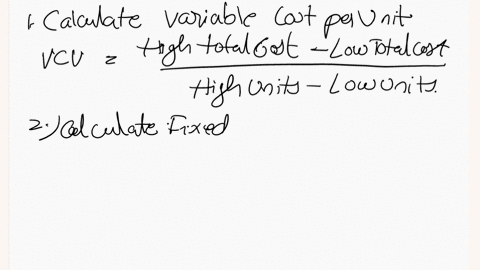 1. Calculate variable Cost per Unit
VCU = High total Cost - Low Total cost
High Units - Low Units.
2.) Calculate Fixed